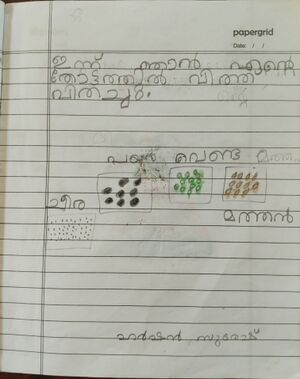 papergrid
Date: / /
ഇന്ന് ഞാൻ എന്റെ
തോട്ടത്തിൽ വിത്ത്
വിതച്ചു.
പയർ വെണ്ട മത്ത
ചീര
മത്തൻ
ഹർഷൻ